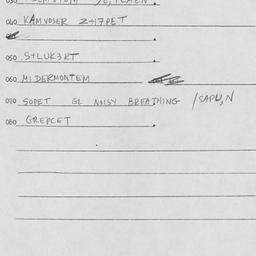 040 KAMVOSER Z+17PET
050 S+LUK3RT
060 MIDERMONTEM
070 SOPET GL NOISY BREATHING /SAPU,N
080 GREPCET